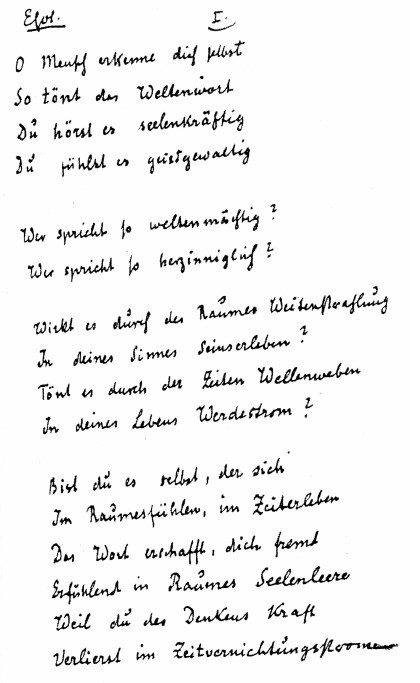 Esot. I.
O Mensch erkenne dich selbst
So tönt das Weltenwort
Dů hörst es seelenkräftig
Dů fühlst es geistgewaltig
Wer spricht so weltenmächtig?
Wer spricht so herzinniglich?
Wirkt es důrch des Raůmes Weitenstrahlůng
In deines Sinnes Seinserleben?
Tönt es durch der Zeiten Wellenweben
In deines Lebens Werdestrom?
Bist dů es selbst, der sich
Im Raůmesfühlen, im Zeiterleben
Das Wort erschafft, dich fremd
Erfühlend in Raůmes Seelenleere
Weil dů des Denkens Kraft
Verlierst im Zeitvernichtůngsstrome